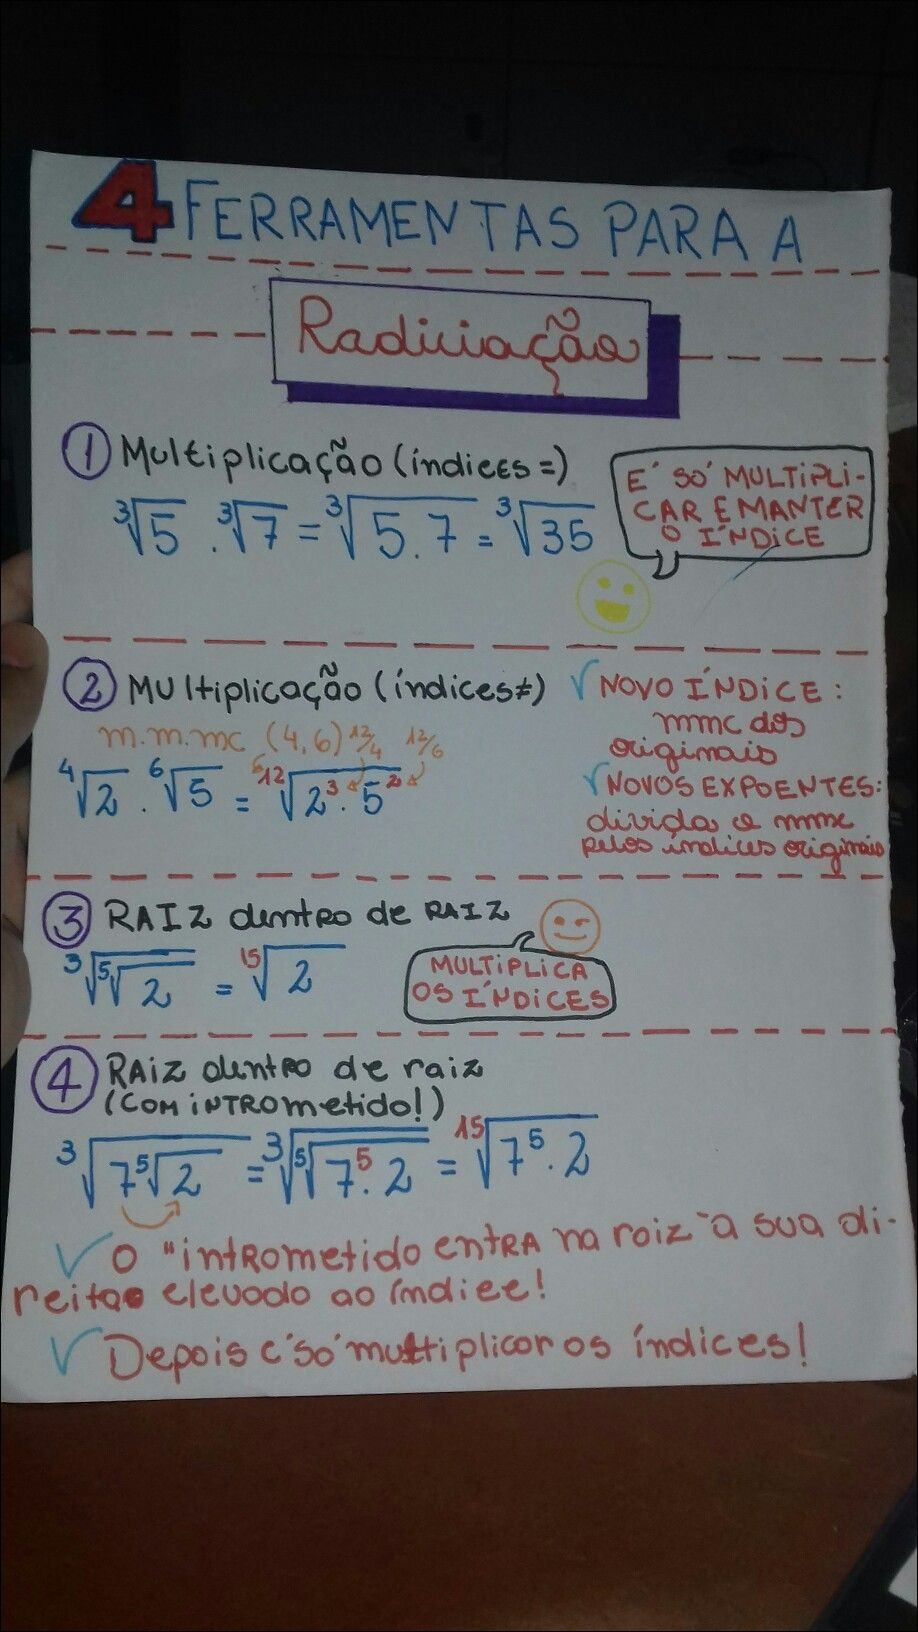 4 FERRAMENTAS PARA A
Radiciação
① Multiplicação (índices =)
∛5 . ∛7 = ∛5.7 = ∛35
É SÓ MULTIPLI-
CAR E MANTER
O ÍNDICE
② Multiplicação (índices ≠)
m.m.mc (4,6) 12/4 12/6
⁴√2 . ⁶√5 = ¹²√2³ . 5²
√ NOVO ÍNDICE:
mmc dos
originais
√ NOVOS EXPOENTES:
divida o mmc
pelos índices originais
③ RAIZ dentro de RAIZ
³√⁵√2 = ¹⁵√2
MULTIPLICA
OS ÍNDICES
④ RAIZ dentro de raiz
(COM INTROmetido!)
³√7⁵√2 = ³√⁵√7⁵.2 = ¹⁵√7⁵.2
√ O "intrometido entra na raiz "a sua di-
reitao elevado ao índice!
√ Depois é só multiplicar os índices!